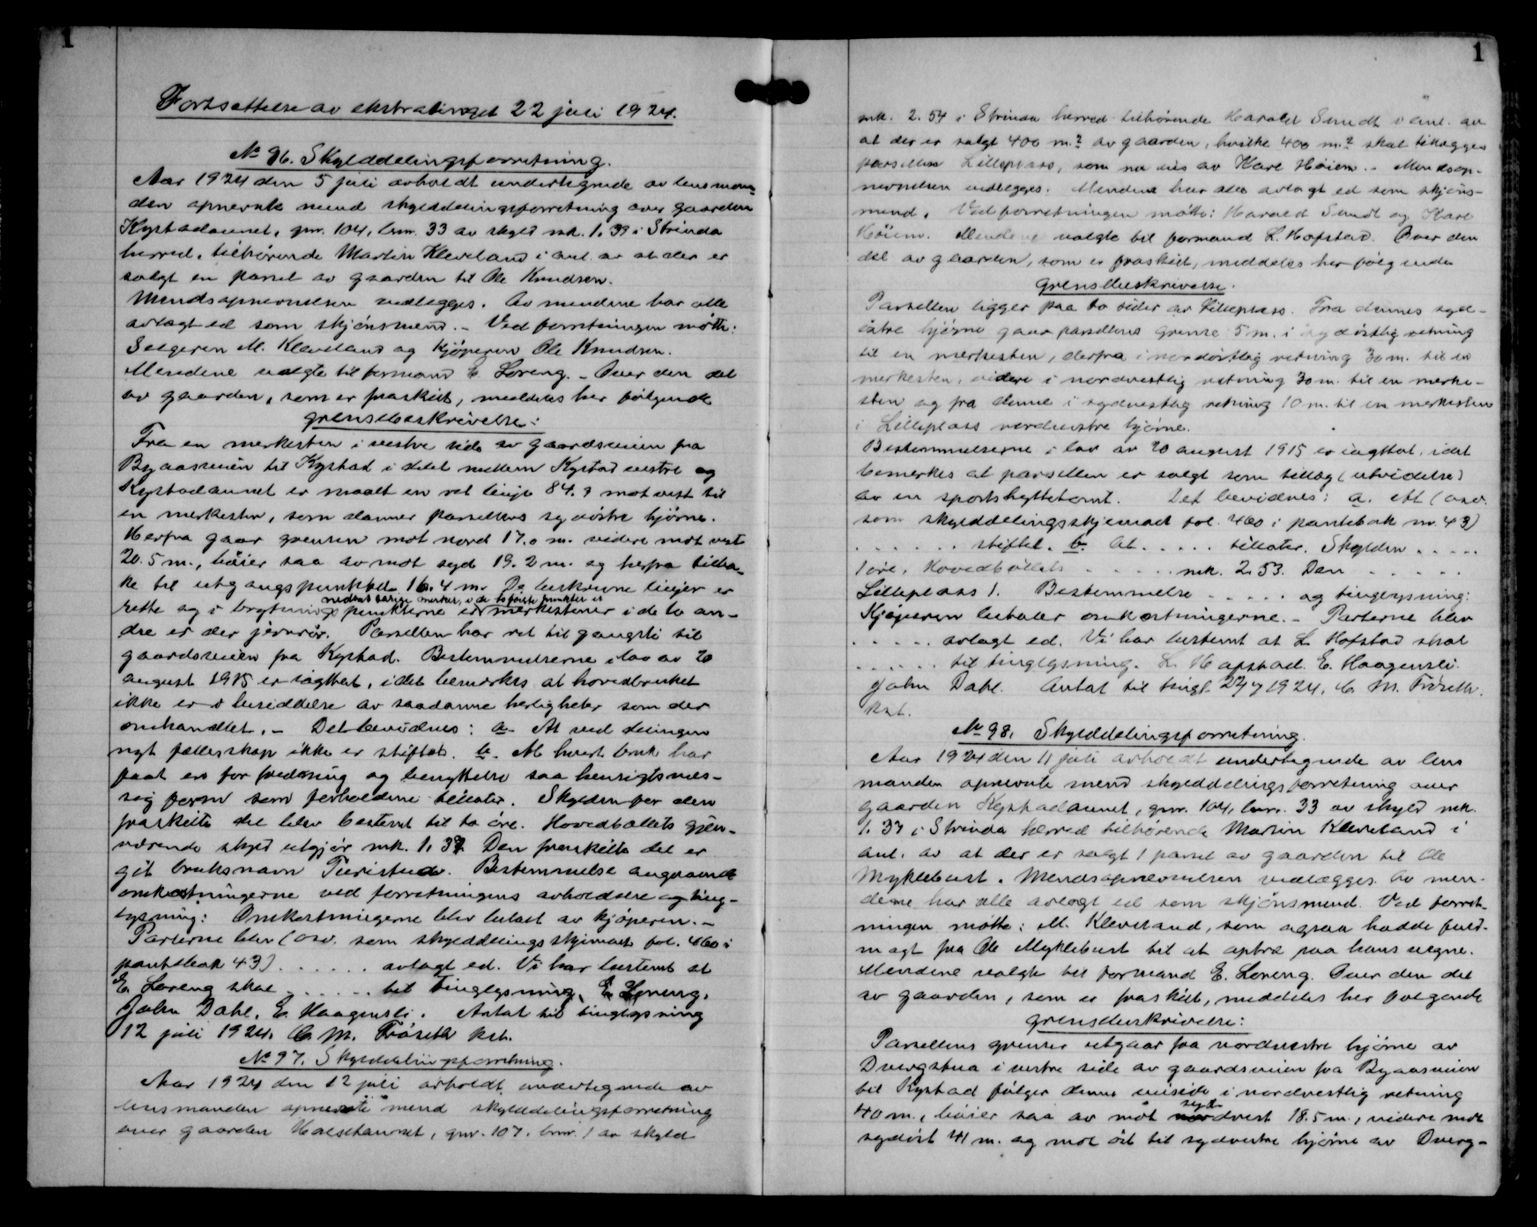 1
Fortsættelse av ekstratinget 22 juli 1924.
No 96. Skylddelingsforretning.
Aar 1924 den 5 juli avholdt undertegnede av lensman-
den opnevnte mend skylddelingsforretning over gaarden
Kystadaunet, gnr. 104, bnr. 33 av skyld mk. 1.39 i Strinda
herred, tilhørende Martin Kleveland i anl. av at der er
solgt en parsel av gaarden til Ole Knudsen.
Mendsopnevnelsen vedlegges. Av mendene har alle
avlagt ed som skjönsmend. - Ved forretningen mötte:
Selgeren M. Kleveland og kjöperen Ole Knudsen.
Mendene valgte til formand E. Loreng. - Over den del
av gaarden, som er fraskilt, meddeles her fölgende
grensebeskrivelse:
Fra en merkesten i vestre side av gaardsveien fra
Byaasveien til Kystad i delet mellem Kystad vestre og
Kystadaunet er maalt en ret linje 84.9 mot vest til
en merkesten, som danner parsellens sydöstre hjörne.
Herfra gaar grensen mot nord 17.0 m. videre mot vest
20.5 m., böier saa av mot syd 19.2 m. og herfra tilba-
ke til utgangspunktet 16.4 m. De beskrevne linjer er
rette og i brytningspunkterne er merkestener i de to an-
dre er der jernrör. Parsellen har ret til gangsti til
gaardsveien fra Kystad. Bestemmelserne i lov av 20
august 1915 er iagttat, idet bemerkes at hovedbruket
ikke er i besiddelse av saadanne herligheter som der
omhandlet. - Det bevidnes: a. At ved delingen
nyt fællesskap ikke er stiftet. b. At hvert bruk har
faat en for fredning og benyttelse saa hensigtsmes-
sig form som forholdene tillater. Skylden for den
fraskilte del blev bestemt til to öre. Hovedbölets gjen-
værende skyld utgjör mk. 1.37. Den fraskilte del er
git bruksnavn Furistad. Bestemmelse angaaende
omkostningerne ved forretningens avholdelse og ting-
lysning: Omkostningerne blev betalt av kjöperen. -
Parterne blev (osv. som skylddelingsskjemaet fol. 460 i
pantebok 43) . . . . . . avlagt ed. Vi har bestemt at
E. Loreng skal . . . . . . til tinglysning. E. Loreng.
John Dahl. E. Haagensli. Antat til tinglysning
12 juli 1924. C. M. Fröseth kst.
No 97. Skylddelingsforretning.
Aar 1924 den 12 juli avholdt undertegnede av
lensmanden opnevnte mend skylddelingsforretning
over gaarden Halsetaunet, gnr. 107, bnr. 1 av skyld
1
mk. 2.54 i Strinda herred tilhörende Harald Sundt i anl. av
at der er solgt 400 m.² av gaarden, hvilke 400 m.² skal tillægges
parsellen Lilleplass, som nu eies av Kare Höiem. - Mendsop-
nevnelsen vedlegges. Mendene har alle avlagt ed som skjöns-
mend. Ved forretningen mötte: Harald Sundt og Kare
Höiem. Mendene valgte til formand L. Hofstad. Over den
del av gaarden, som er fraskilt, meddeles her fölgende
grensebeskrivelse.
Parsellen ligger paa to sider av Lilleplass. Fra dennes syd-
östre hjörne gaar parsellens grense 5 m. i sydöstlig retning
til en merkesten, derfra i nordöstlig retning 30 m. til en
merkesten, videre i nordvestlig retning 30 m. til en merke-
sten og fra denne i sydvestlig retning 10 m. til en merkesten
i Lilleplass nordvestre hjörne.
Bestemmelserne i lov av 20 august 1915 er iagttat, idet
bemerkes at parsellen er solgt som tillæg (utvidelse)
av en sportshyttetomt. Det bevidnes: a. Att (osv.
som skylddelingsskjemaet fol. 460 i pantebok nr. 43)
. . . . . . stiftet. b. At . . . . . tillater. Skylden . . . . .
1 öre. Hovedbölets . . . . . . mk. 2.53. Den . . . . . .
Lilleplass 1. Bestemmelse . . . . . og tinglysning:
Kjöperen betaler omkostningerne. - Parterne blev
. . . . . avlagt ed. Vi har bestemt at L. Hofstad skal
. . . . . til tinglysning. L. Hofstad. E. Haagensli.
John Dahl. Antat til tingl. 22/7 1924. C. M. Fröseth.
kst.
No 98. Skylddelingsforretning.
Aar 1924 den 11 juli avholdt undertegnede av lens
manden opnevnte mend skylddelingsforretning over
gaarden Kystadaunet, gnr. 104, bnr. 33 av skyld mk.
1.37 i Strinda herred tilhörende Martin Kleveland i
anl. av at der er solgt 1 parsel av gaarden til Ole
Myklebust. Mendsopnevnelsen vedlægges. Av men-
dene har alle avlagt ed som skjönsmend. Ved forret-
ningen mötte: M. Kleveland, som ogsaa hadde fuld-
magt fra Ole Myklebust til at optre paa hans vegne.
Mendene valgte til formand E. Loreng. Over den del
av gaarden, som er fraskilt, meddeles her fölgende
grensebeskrivelse:
Parsellens grenser utgaar fra nordvestre hjörne av
Dvergstua i vestre side av gaardsveien fra Byaasveien
til Kystad fölger denne veiside i nordvestlig retning
40 m., böier saa av mot sydvest 18.5 m., videre mot
sydöst 41 m. og mot öst til sydvestre hjörne av Dverg-